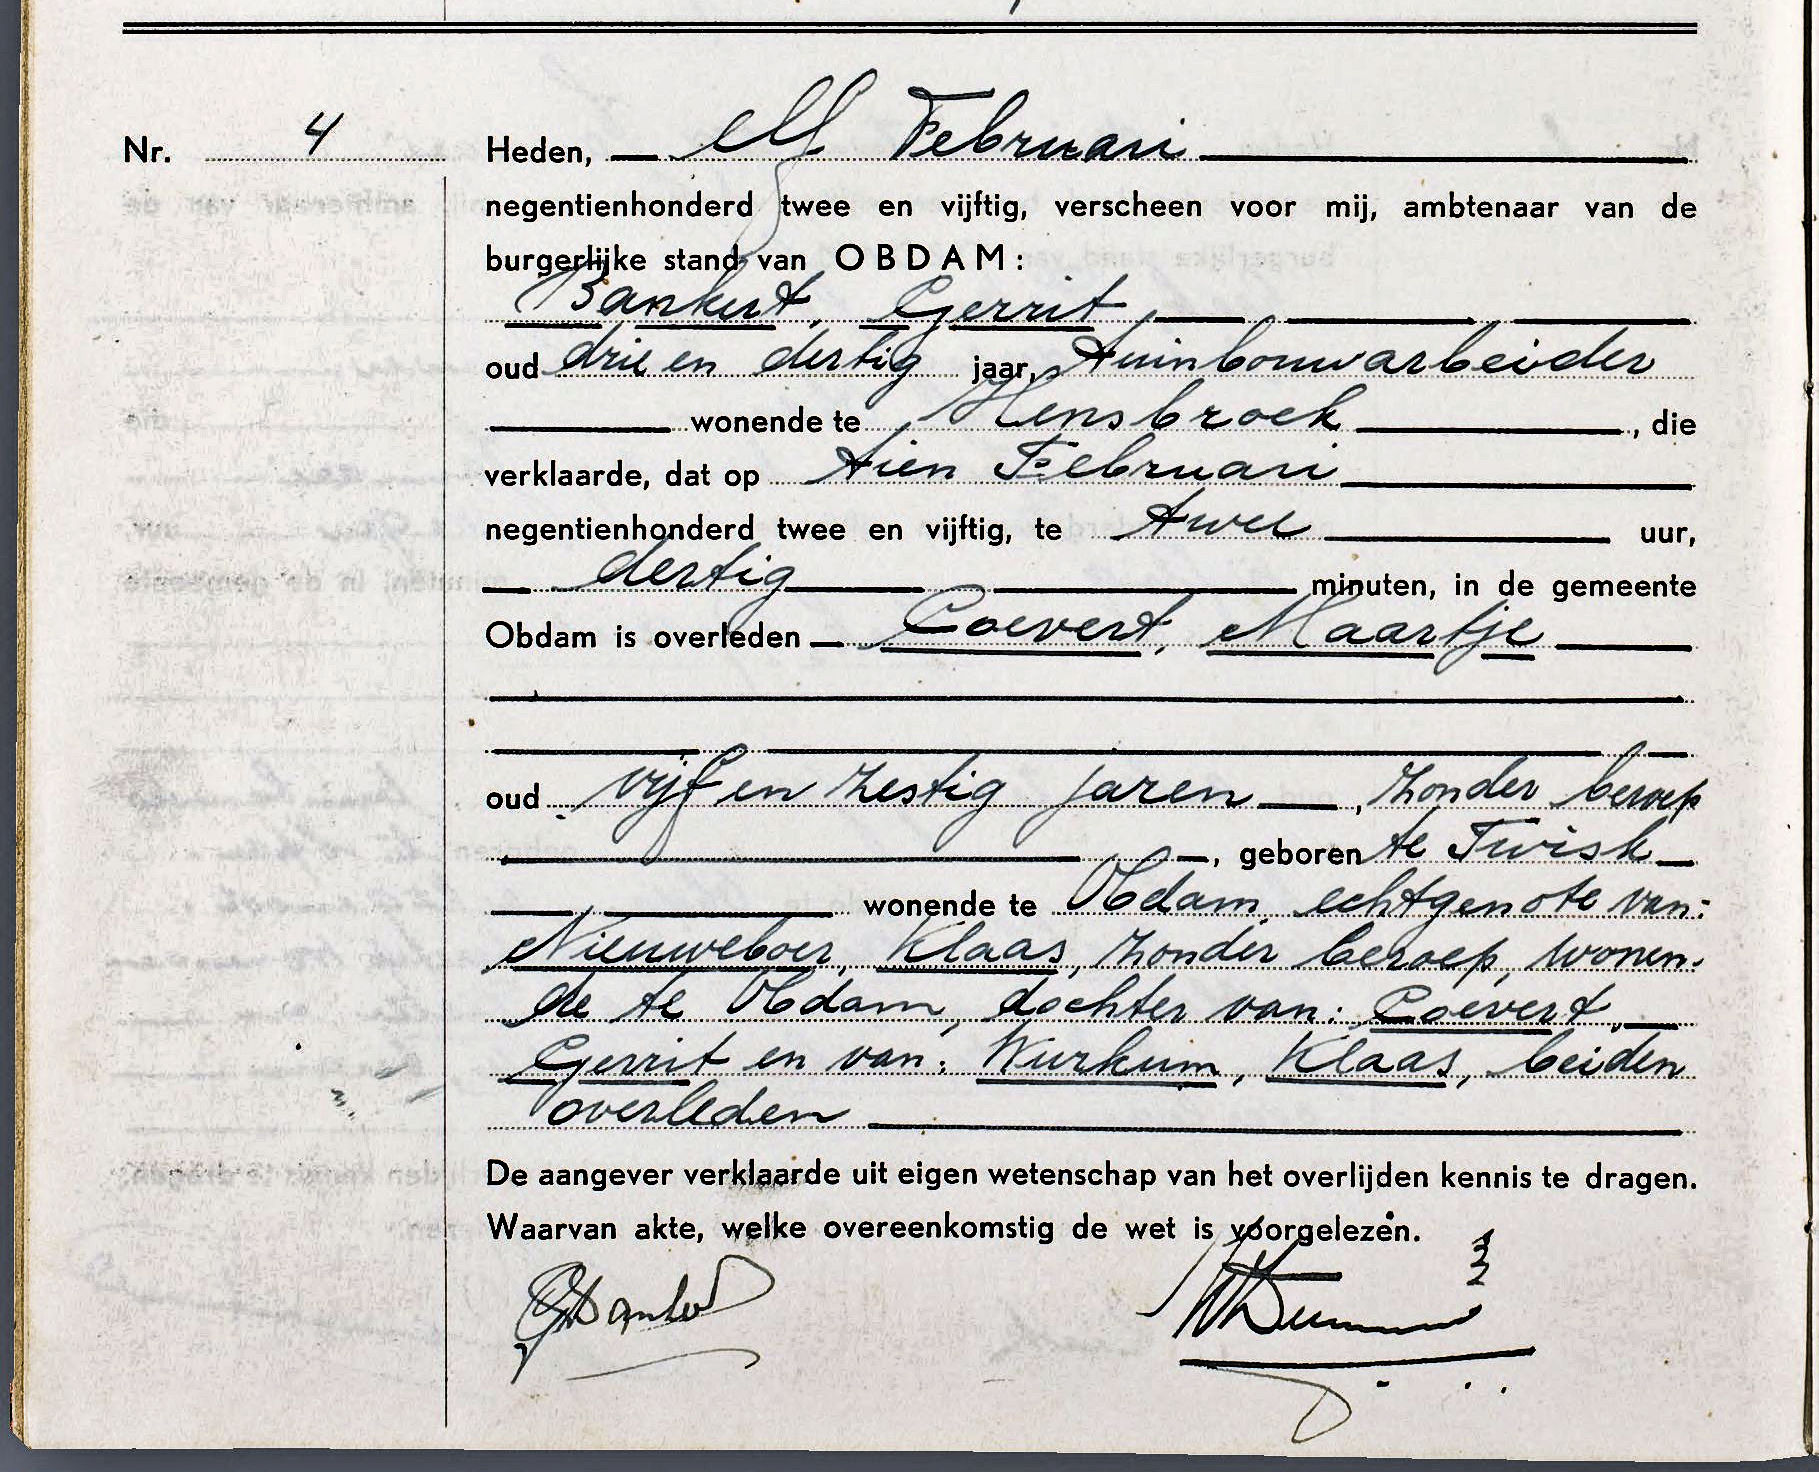 Nr. 4 Heden, elf Februari
negentienhonderd twee en vijftig, verscheen voor mij, ambtenaar van de
burgerlijke stand van OBDAM:
Bankert, Gerrit,
oud drie en dertig jaar, tuinbouwarbeider
wonende te Hensbroek, die
verklaarde, dat op tien Februari
negentienhonderd twee en vijftig, te twee uur,
dertig minuten, in de gemeente
Obdam is overleden Coevert, Maartje
oud vijf en zestig jaren, zonder beroep
, geboren te Twisk
wonende te Obdam, echtgenote van:
Nieuweboer, Klaas, zonder beroep, wonen-
de te Obdam, dochter van: Coevert,
Gerrit en van: Wurkum, Klaas, beiden
overleden
De aangever verklaarde uit eigen wetenschap van het overlijden kennis te dragen.
Waarvan akte, welke overeenkomstig de wet is voorgelezen.